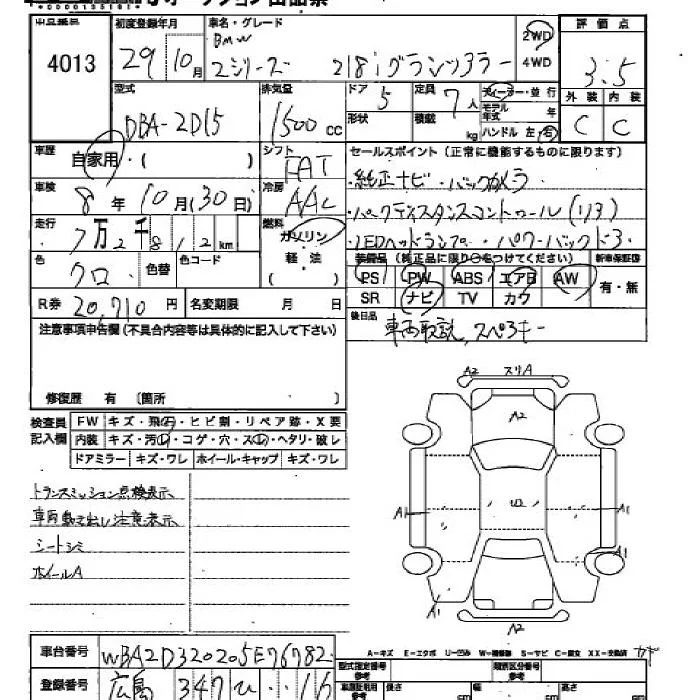 4013
初度登録年月
29年10月
車名・グレード
BMW
2シリーズ 218iグランツアラー
2WD
4WD
評価点
3.5
外装 内装
C C
型式
DBA-2D15
排気量
1500cc
ドア 5
形状
定員 7人
積載 kg
ディーラー・並行
モデル年式 年
ハンドル 左・右
車歴
自家用・( )
シフト
FAT
セールスポイント(正常に機能するものに限ります)
純正ナビ・バックカメラ
・パークディスタンスコントロール(リア)
・LEDヘッドランプ・パワーバックドア
車検
8年10月(30日)
冷房
AAC
走行
7万2千812km
燃料
ガソリン
軽・油
( )
色
クロ
色替
色コード
装備品(純正品に限り○をつけてください)
新車保証書
PS PW ABS エアB AW
SR ナビ TV カワ
有・無
R券 20,710円
名変期限 月 日
後日品
車両取説、スペアキー
注意事項申告欄(不具合内容等は具体的に記入して下さい)
修復歴 有 〔箇所 〕
検査員記入欄
FW キズ・飛石・ヒビ割・リペア跡・X要
内装 キズ・汚レ・コゲ・穴・スレ・ヘタリ・破レ
ドアミラー キズ・ワレ ホイール・キャップ キズ・ワレ
トランスミッション点検表示
車両動き出し注意表示
シートシミ
ホイールA
A2 スリA
A2
A1
A1
A1
A2
A-キズ E-エクボ U-凹み W-補修跡 S-サビ C-腐食 XX-交換済
車台番号 WBA2D320205E76782
登録番号 広島 347 ひ ・・16
型式指定番号
参考
類別区分番号
参考
長さ
幅
高さ